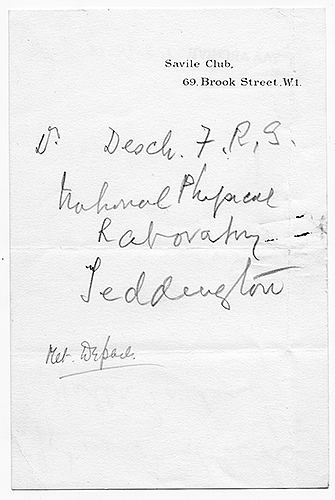 Savile Club,
69, Brook Street, W.1.
Dr Desch. F.R.S.
National Physical
Laboratory
Teddington
Met. Depart.